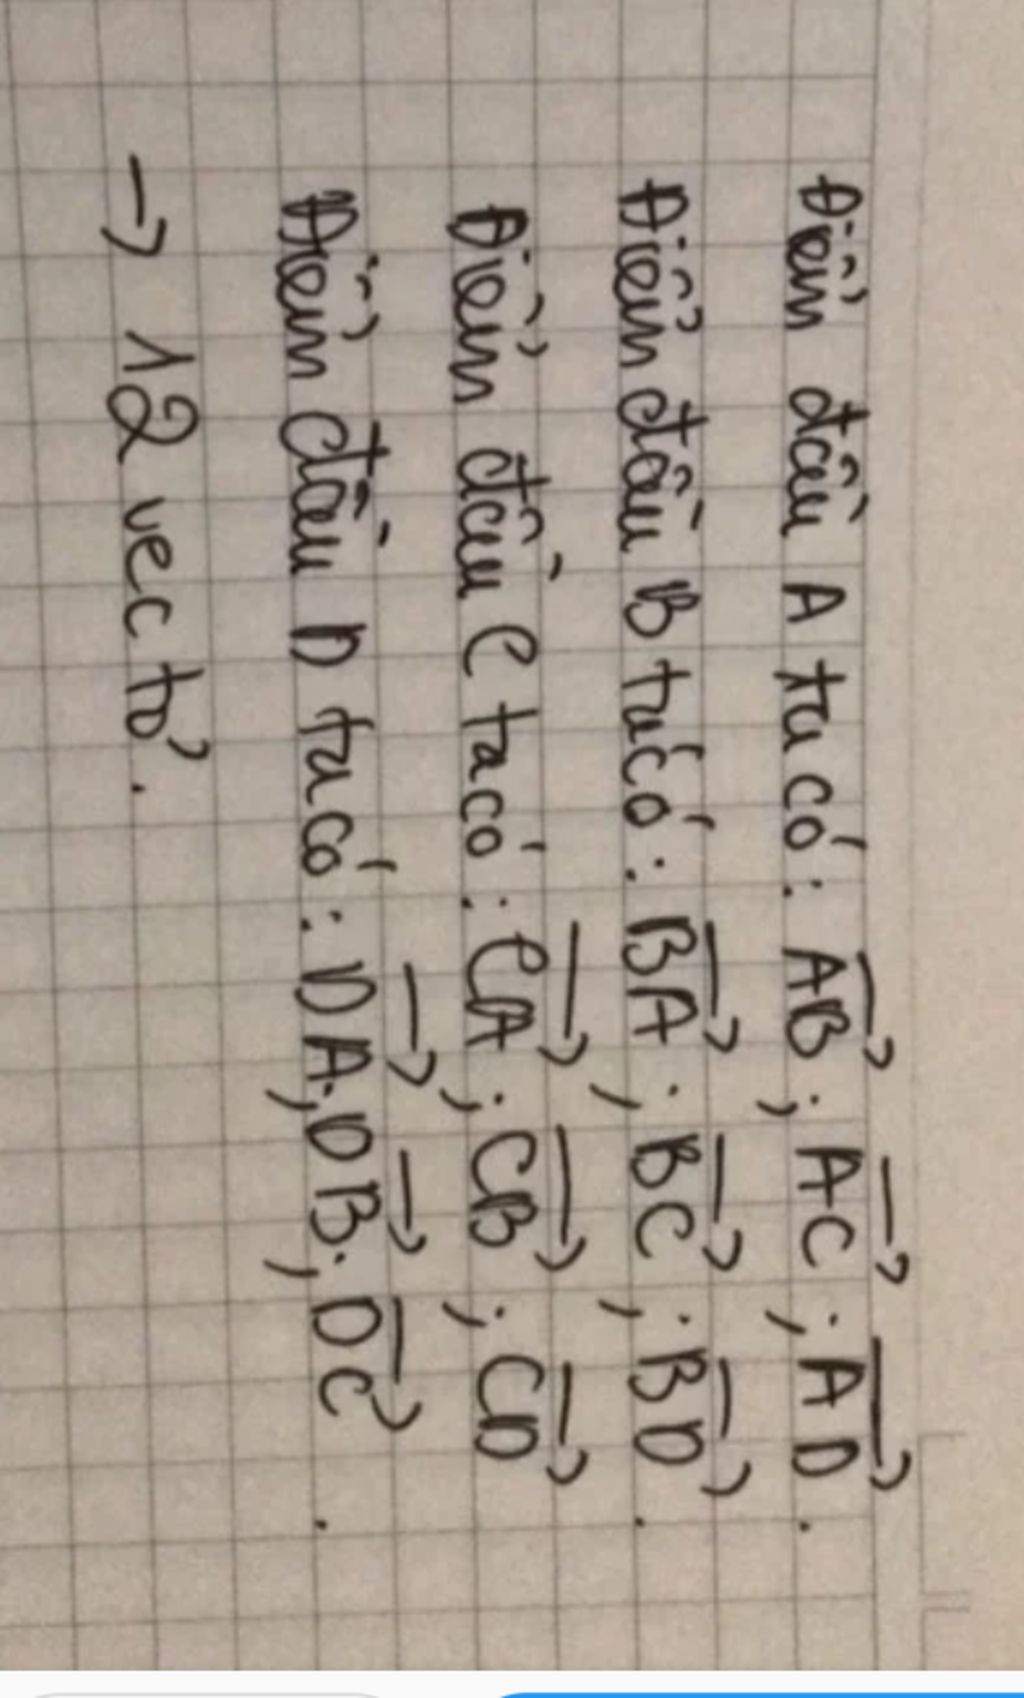 Điểm đầu A ta có: $\overrightarrow{AB}$; $\overrightarrow{AC}$; $\overrightarrow{AD}$.
Điểm đầu B ta có: $\overrightarrow{BA}$; $\overrightarrow{BC}$; $\overrightarrow{BD}$.
Điểm đầu C ta có: $\overrightarrow{CA}$; $\overrightarrow{CB}$; $\overrightarrow{CD}$
Điểm đầu D ta có: $\overrightarrow{DA}$; $\overrightarrow{DB}$; $\overrightarrow{DC}$.
→ 12 vectơ.